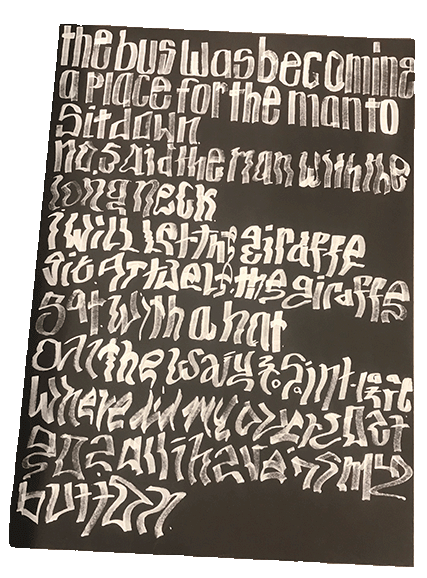 the bus was becoming
a place for the man to
Sit down
no, said the man with the
long neck
I will let the giraffe
sit at the the giraffe
sat with a hat
all the way to Saint
where did my go
all i have is my
button